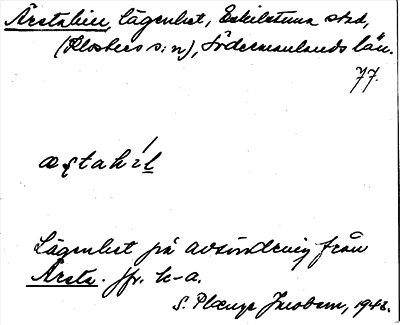 Ärstalien, lägenhet, Eskilstuna stad,
(Klosters s:n), Södermanlands län.
77.
Lägenhet på avsöndring från
Ärsta. Jfr. k-a.
S. Plœnge Jacobson, 1948.